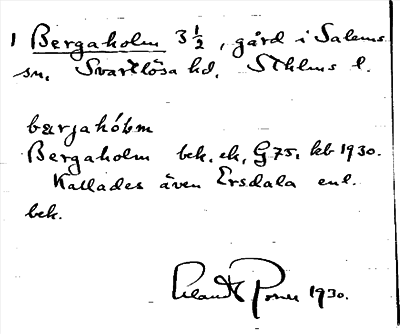 1 Bergaholm 3 ½, gård i Salems
sn. Svartlösa hd, Sthlms l.
bærjahólm
Bergaholm bek. ek, G 75, kb 1930.
Kallades även Ersdala enl.
bek.
1930.